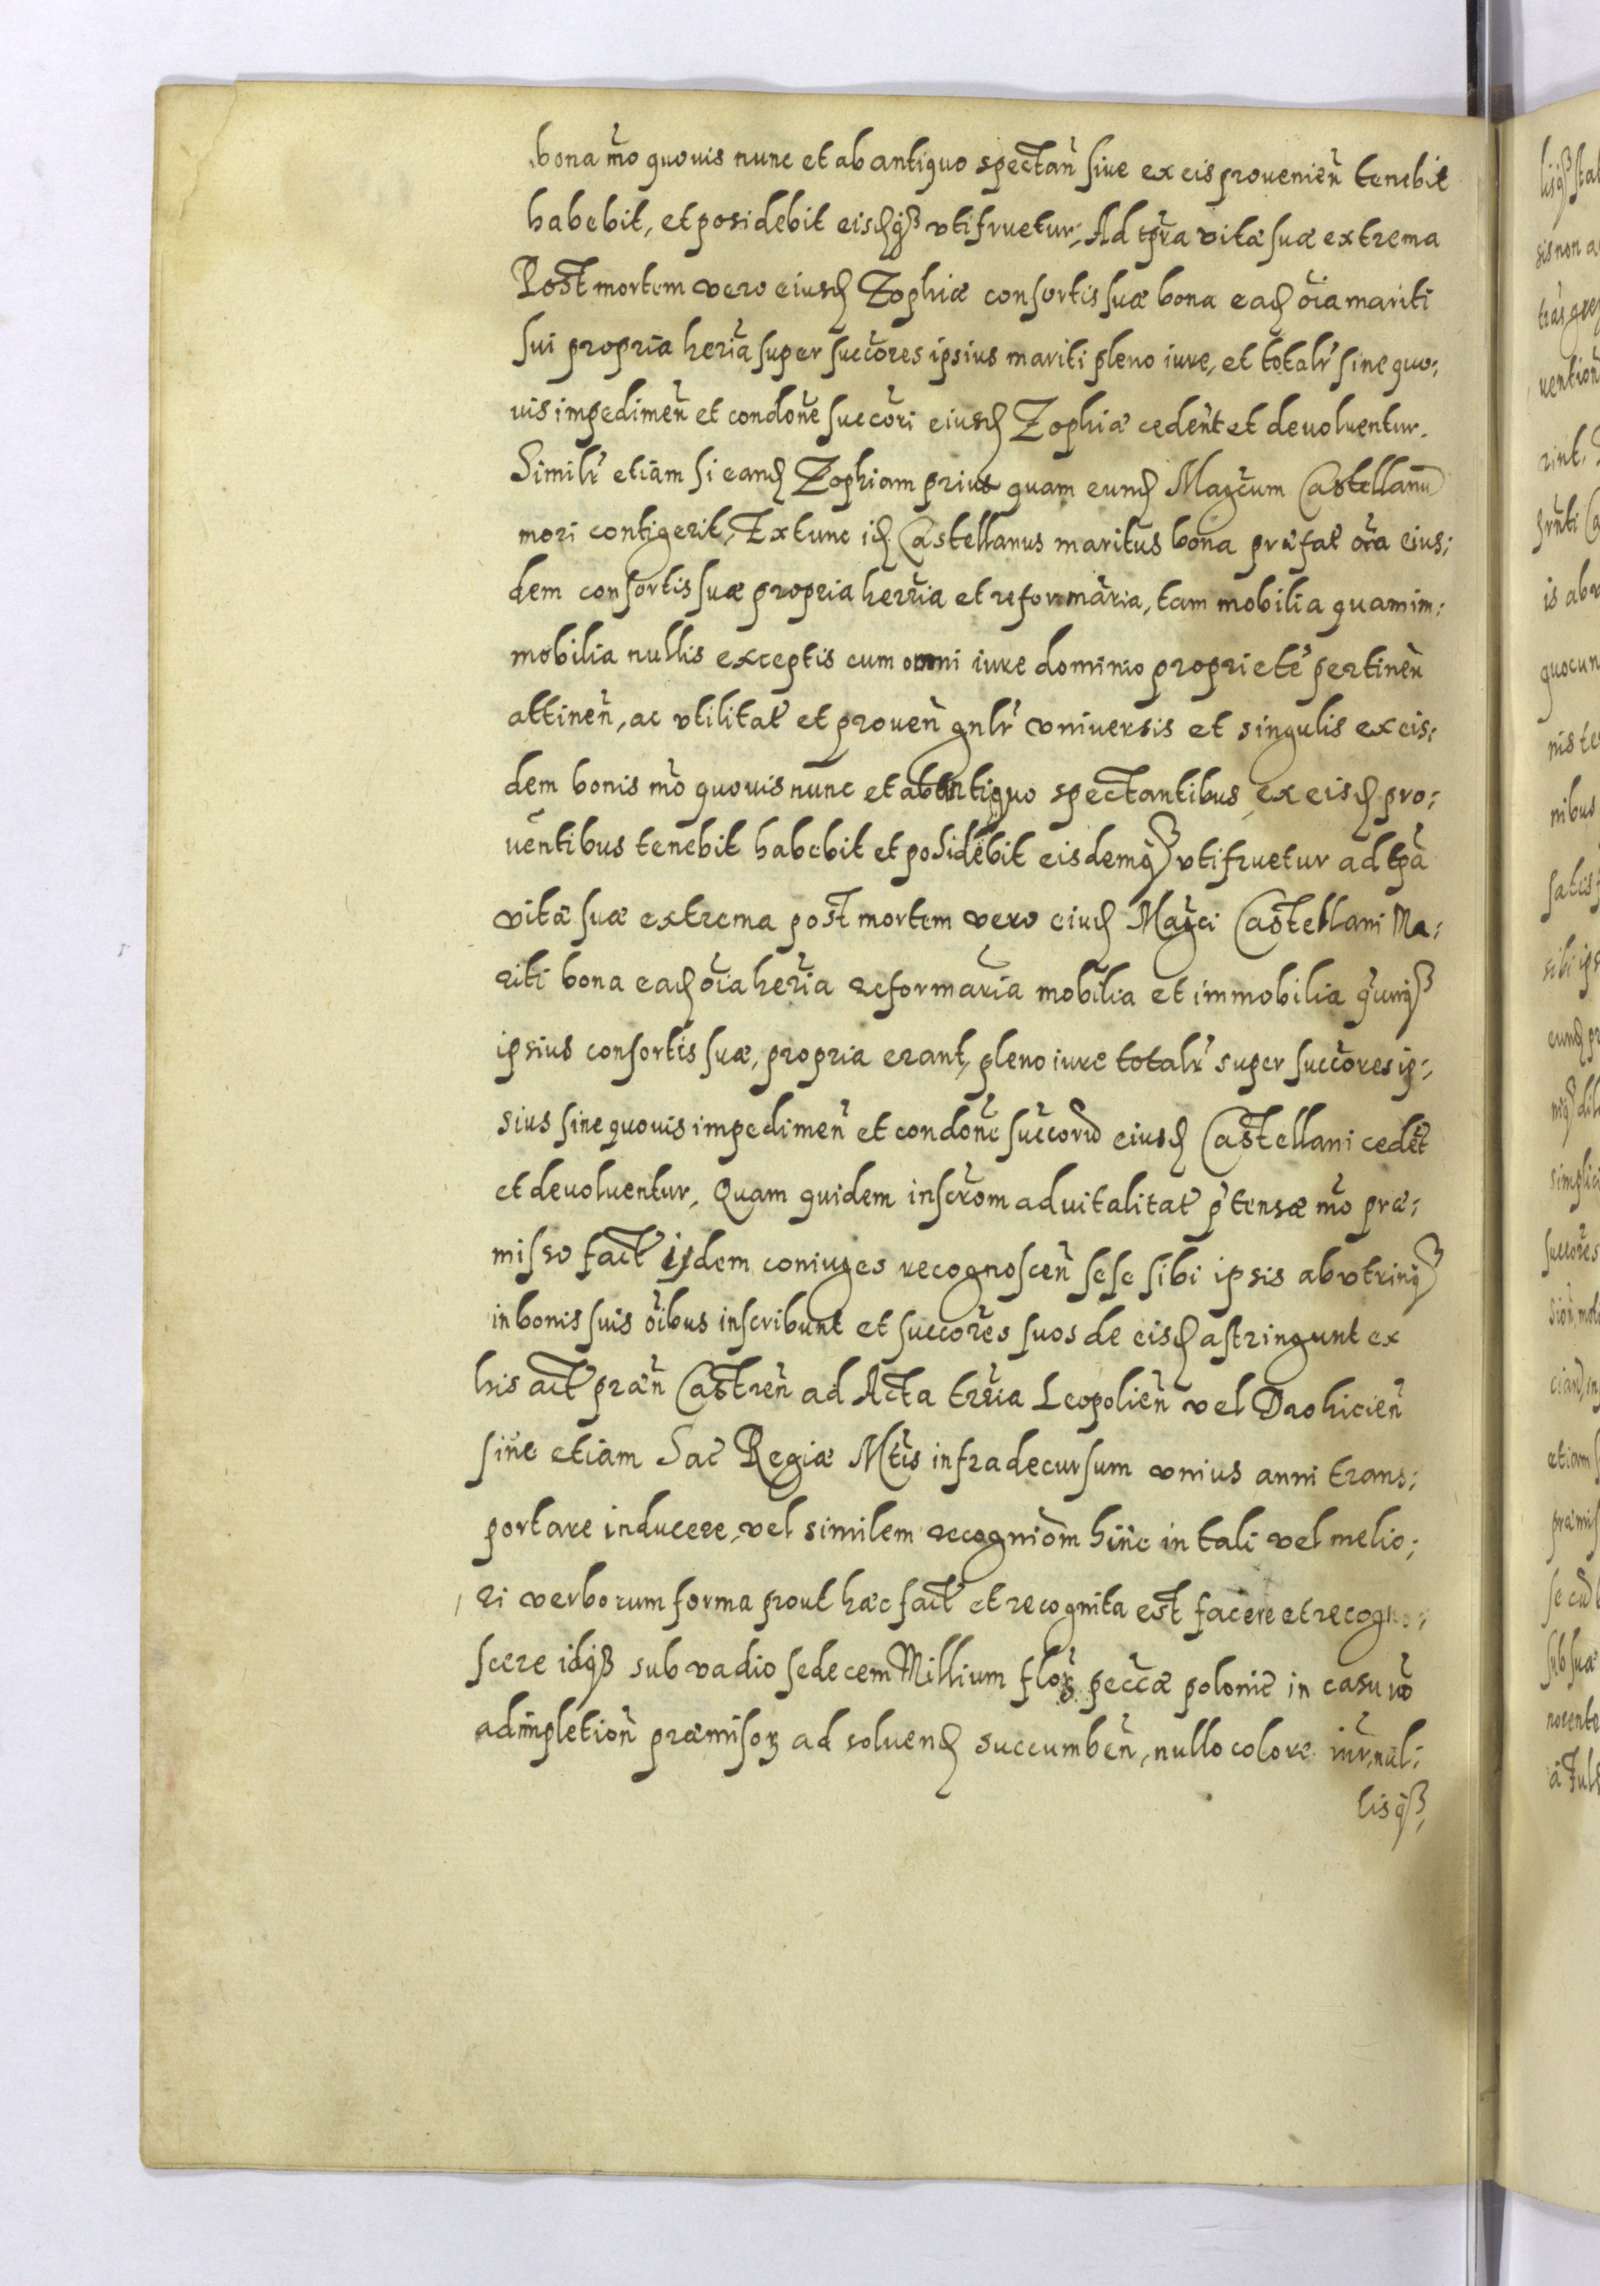 bona mo quouis nunc et ab antiquo spectan siue ex eis prouenien tenebit
habebit, et posidebit eisdqȝ vtifruetur, Ad tpra vitæ suæ extrema
Post mortem vero eiusd Zophiæ consortis suæ bona ead oia mariti
sui propria heria super succores ipsius mariti pleno iure, et totalr sine quo:
uis impedimen et condone succori eiusd Zophiæ cedent et deuoluentur.
Similr etiam si eand Zophiam prius quam eund Magcum Castellanu
mori contigerit, Extunc id Castellanus maritus bona præfat oia eius:
dem consortis suæ propria herria et reformaria, tam mobilia quam im:
mobilia nullis exceptis cum omni iure dominio propriete pertinen
attinen, ac vtilitat et prouen gnlr vniuersis et singulis ex eis:
dem bonis mo quouis nunc et ab antiquo spectantibus, ex eisd pro:
uentibus tenebit habebit et posidebit eisdemqȝ vtifruetur ad tpa
vitæ suæ extrema post mortem vero eiusd Magci Castellani Ma:
riti bona ead oia heria reformaria mobilia et immobilia qunqȝ
ipsius consortis suæ, propria erant, pleno iure totalr super succores ip:
sius sine quouis impedimen et condone succoru eiusd Castellani cedet
et deuoluentur, Quam quidem inscrom aduitalitat ptensæ mo præ:
misso fact ijdem coniuges recognoscen sese sibi ipsis ab vtrinqȝ
in bonis suis oibus inscribunt et succores suos de eisd astringunt ex
his act præn Castren ad Acta trria Leopolien vel Drohicien
siue etiam Sac Regiæ Mtis infra decursum vnius anni trans:
portare inducere, vel similem recogniom hinc in tali vel melio:
ri verborum forma prout hæc fact et recognita est facere et recogno:
scere idqȝ sub vadio sedecem Millium flor pecciæ polonic in casu vo
adimpletion præmisor ad soluend succumben, nullo colore iur, nul:
lisqȝ,